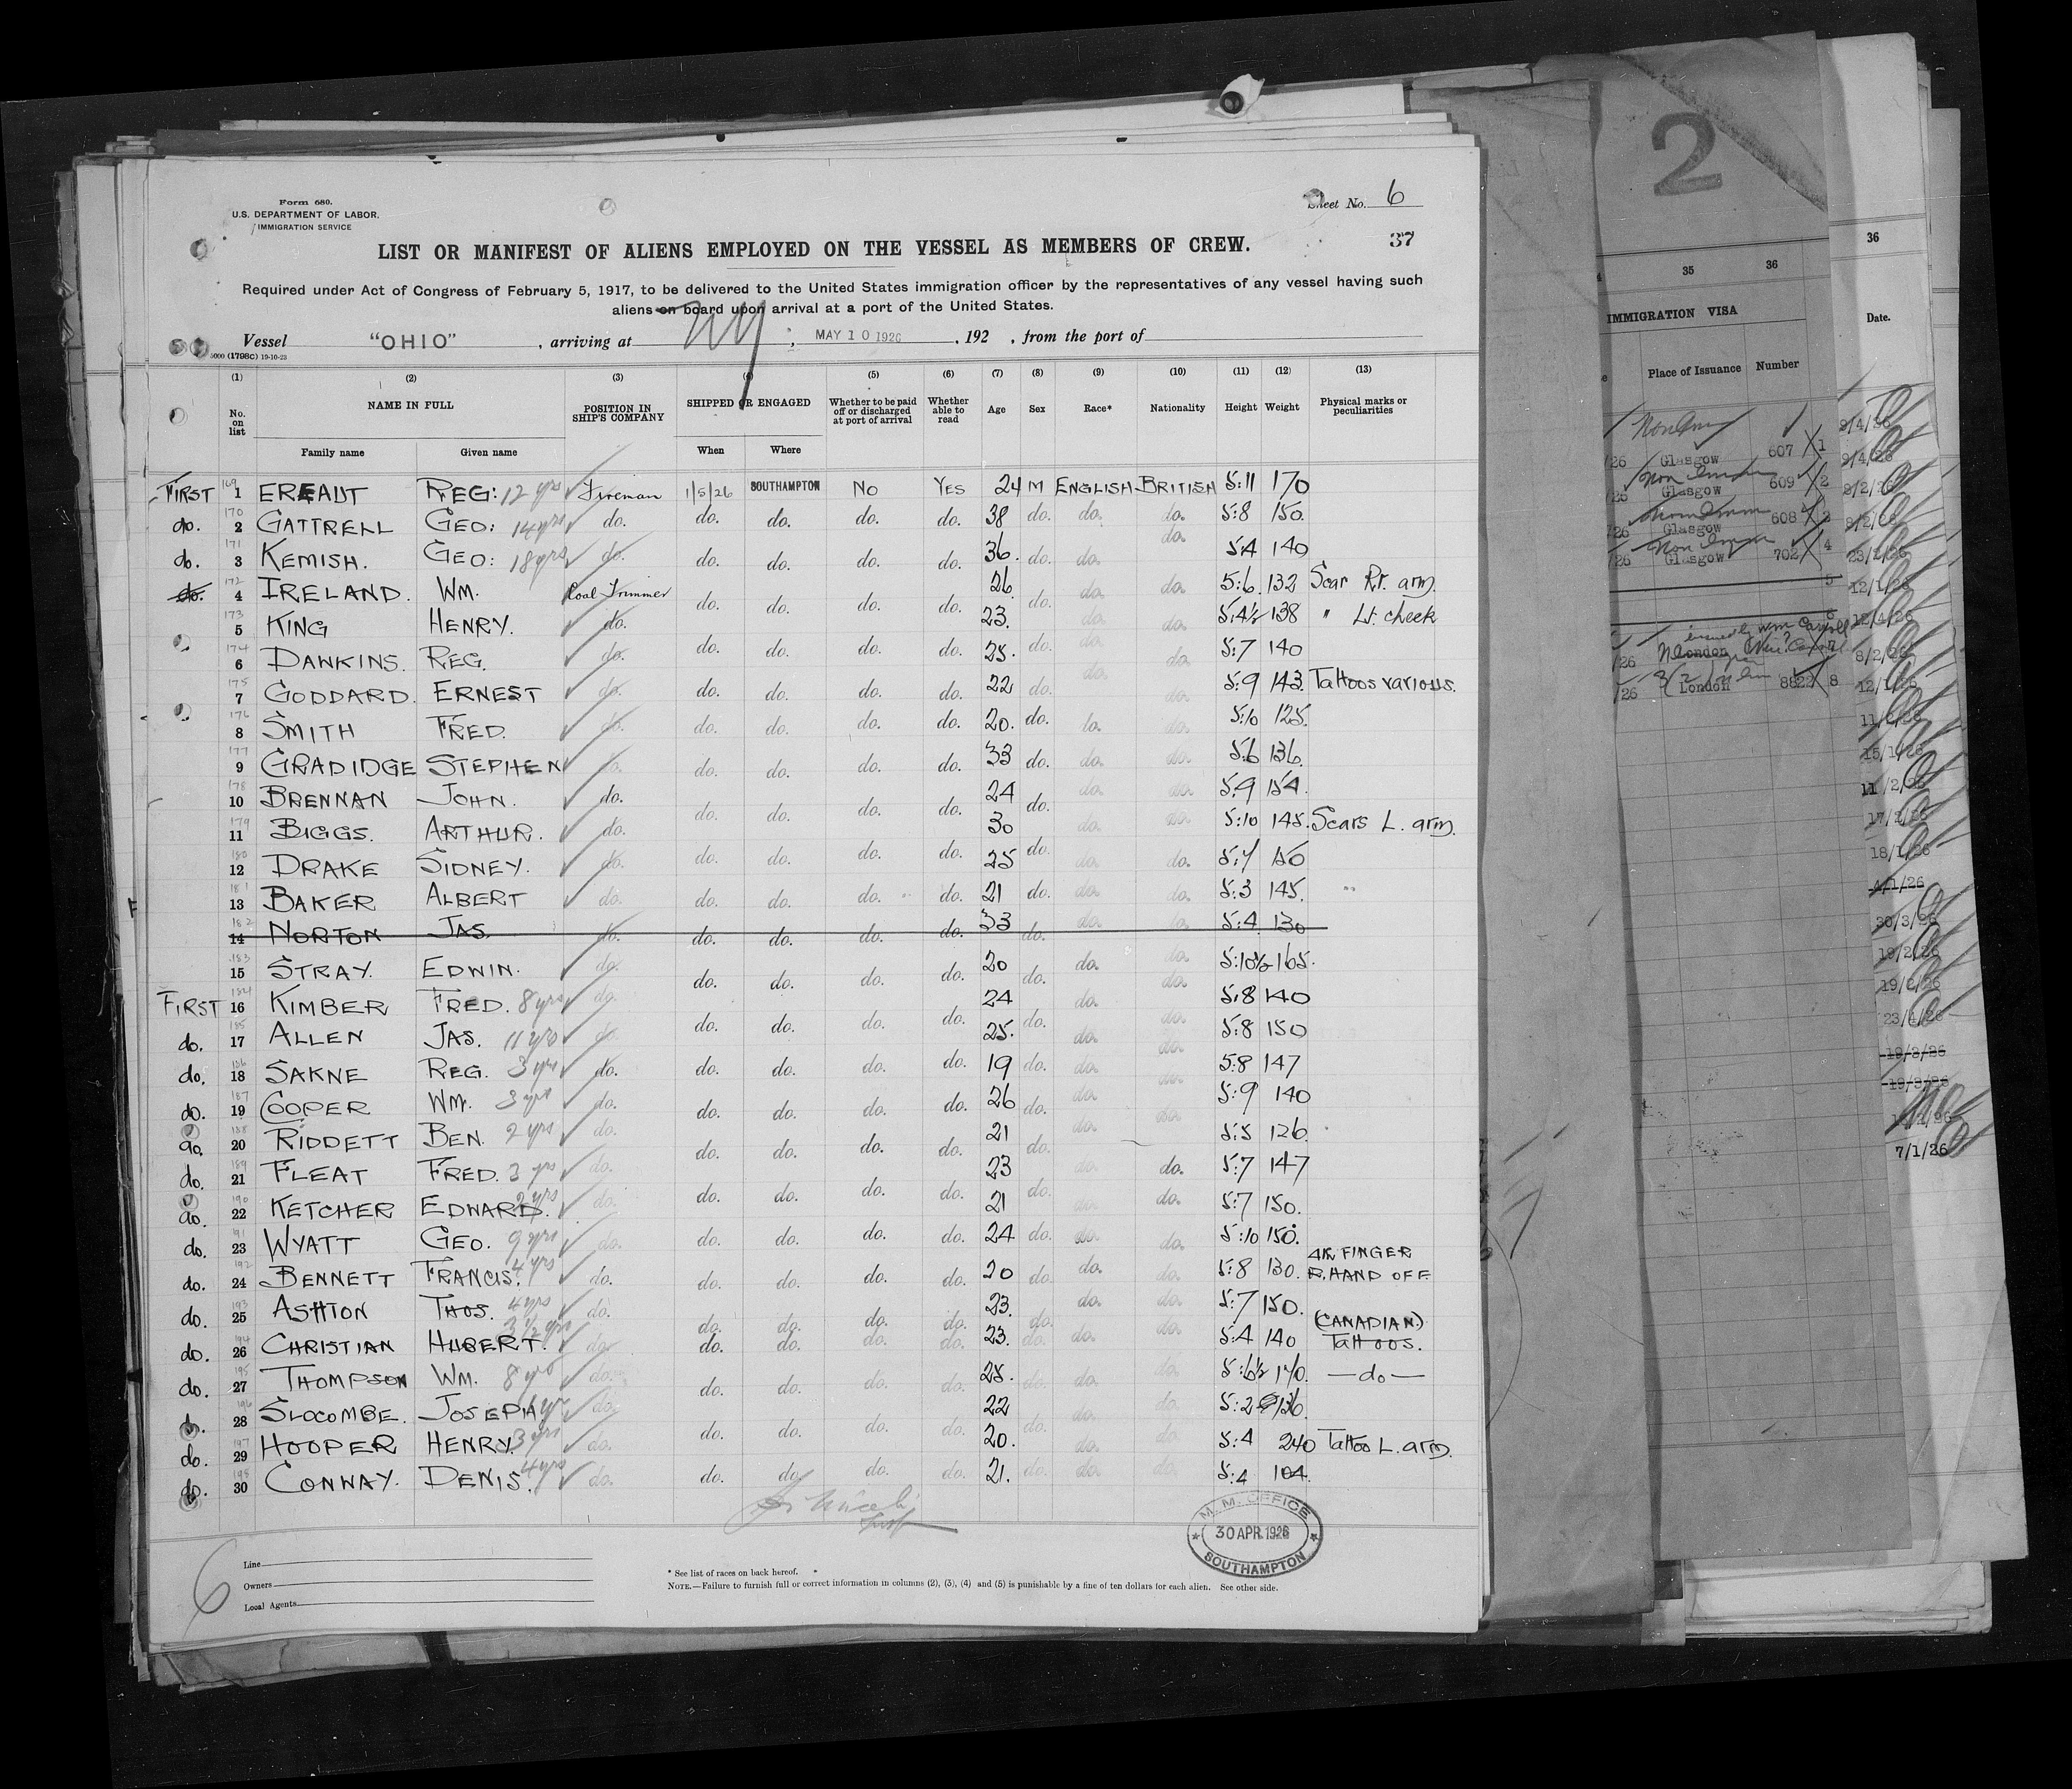 Form 680.
U.S. DEPARTMENT OF LABOR.
IMMIGRATION SERVICE
Sheet No. 6
37
LIST OR MANIFEST OF ALIENS EMPLOYED ON THE VESSEL AS MEMBERS OF CREW.
Required under Act of Congress of February 5, 1917, to be delivered to the United States immigration officer by the representatives of any vessel having such
aliens on board upon arrival at a port of the United States.
Vessel "OHIO", arriving at NY, MAY 10 1926, 192 , from the port of
5000 (1798C) 19-10-23
(1) (2) (3) (4) (5) (6) (7) (8) (9) (10) (11) (12) (13)
No. on list NAME IN FULL POSITION IN SHIP'S COMPANY SHIPPED OR ENGAGED Whether to be paid off or discharged at port of arrival Whether able to read Age Sex Race* Nationality Height Weight Physical marks or peculiarities
Family name Given name When Where
FIRST 169 1 EREAUT REG: 12 yrs Fireman 1/5/26 SOUTHAMPTON NO YES 24 M ENGLISH BRITISH 5:11 170
do. 170 2 GATTRELL GEO: 14 yrs do. do. do. do. do. 38 do. do. do. 5:8 150
do. 171 3 KEMISH. GEO: 18 yrs do. do. do. do. do. 36. do. do. do. 5:4 140
do. 172 4 IRELAND. WM. Coal Trimmer do. do. do. do. 26 do. do. do. 5:6 132 Scar Rt. arm.
173 5 KING HENRY. do. do. do. do. do. 23. do. do. do. 5:4½ 138 " Lt. cheek
174 6 DAWKINS. REG. do. do. do. do. do. 25. do. do. do. 5:7 140
175 7 GODDARD. ERNEST do. do. do. do. do. 22 do. do. do. 5:9 143. Tattoos various.
176 8 SMITH FRED. do. do. do. do. do. 20. do. do. do. 5:10 125.
177 9 GRADIDGE STEPHEN do. do. do. do. do. 33 do. do. do. 5:6 136.
178 10 BRENNAN JOHN. do. do. do. do. do. 24 do. do. do. 5:9 154.
179 11 BIGGS. ARTHUR. do. do. do. do. do. 30 do. do. do. 5:10 145. Scars L. arm.
180 12 DRAKE SIDNEY. do. do. do. do. do. 25 do. do. do. 5:7 150
181 13 BAKER ALBERT do. do. do. do. do. 21 do. do. do. 5:3 145.
182 14 NORTON JAS. do. do. do. do. do. 33 do. do. do. 5:4 130
183 15 STRAY. EDWIN. do. do. do. do. do. 20 do. do. do. 5:10½ 165.
FIRST 184 16 KIMBER FRED. 8 yrs do. do. do. do. do. 24 do. do. do. 5:8 140
do. 185 17 ALLEN JAS. 11 yrs do. do. do. do. do. 25. do. do. do. 5:8 150
do. 186 18 SAKNE REG. 3 yrs do. do. do. do. do. 19 do. do. do. 5:8 147
do. 187 19 COOPER WM. 3 yrs do. do. do. do. do. 26 do. do. do. 5:9 140
do. 188 20 RIDDETT BEN. 2 yrs do. do. do. do. do. 21 do. do. do. 5:5 126.
do. 189 21 FLEAT FRED. 3 yrs do. do. do. do. do. 23 do. do. do. 5:7 147
do. 190 22 KETCHER EDWARD. 2 yrs do. do. do. do. do. 21 do. do. do. 5:7 150.
do. 191 23 WYATT GEO. 9 yrs do. do. do. do. do. 24 do. do. do. 5:10 150.
do. 192 24 BENNETT FRANCIS. 4 yrs do. do. do. do. do. 20 do. do. do. 5:8 130. 4th FINGER R. HAND OFF
do. 193 25 ASHTON THOS. 4 yrs do. do. do. do. do. 23. do. do. do. 5:7 150.
do. 194 26 CHRISTIAN HUBERT. 3½ yrs do. do. do. do. do. 23. do. do. do. 5:4 140 (CANADIAN) Tattoos.
do. 195 27 THOMPSON WM. 8 yrs do. do. do. do. do. 25. do. do. do. 5:6½ 170. —do—
do. 196 28 SLOCOMBE. JOSEPH yr do. do. do. do. do. 22 do. do. do. 5:2 136.
do. 197 29 HOOPER HENRY. 3 yrs do. do. do. do. do. 20. do. do. do. 5:4 240 Tattoo L. arm.
do. 198 30 CONWAY. DENIS. 4 yrs do. do. do. do. do. 21. do. do. do. 5:4 104.
M. M. OFFICE
30 APR 1926
SOUTHAMPTON
6
Line
Owners
Local Agents
* See list of races on back hereof.
NOTE.—Failure to furnish full or correct information in columns (2), (3), (4) and (5) is punishable by a fine of ten dollars for each alien. See other side.
2
35 36
IMMIGRATION VISA
Place of Issuance Number
/26 Glasgow 607 1
/26 Glasgow 609 2
/26 Glasgow 608 3
/26 Glasgow 702 4
5
6
/26 London 7
/26 London 8822 8
36
Date.
9/4/26
9/4/26
9/2/26
8/2/26
23/2/26
12/1/26
12/4/26
8/2/26
12/1/26
11/2/26
15/1/26
11/2/26
17/2/26
18/1/26
4/1/26
30/3/26
19/2/26
19/2/26
23/4/26
19/3/26
19/3/26
7/1/26